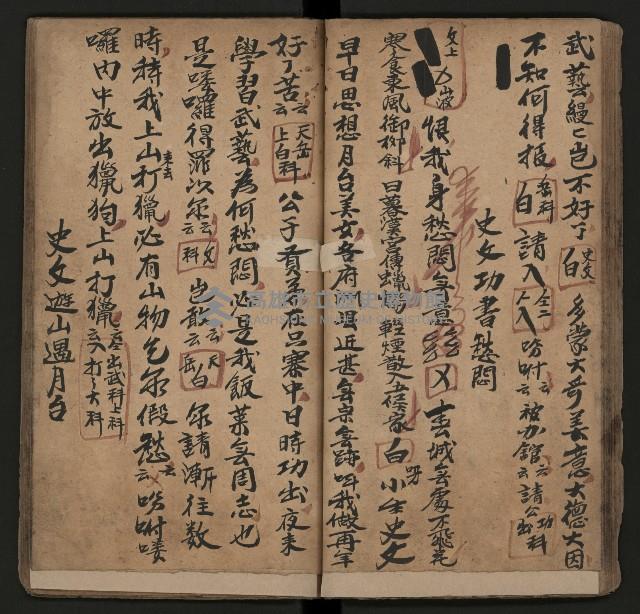 武藝縵々豈不好了 白 史文 多蒙大哥美意大德大因
不知何得報 岳科 白 請入 仝二人入 吩咐云 被办舘云 請公出 功科
史文功書愁悶
文上 力波 恨我身愁悶 又 春城無處不飛花
寒食東風御柳斜 日暮漢宮傳蠟燭 輕煙散入五侯家 白 小生史文
早日思想月台美女各府 甚無宗無跡 叫我做再年
好了苦云 天岳上白科 公子 在只寨中日時功出夜來
學習武藝為何愁悶 是我飯菜無周志也
是嘍囉得罪以尔云 文科 豈敢云 天岳白 尔請漸往數
時待我上山打獵必有山物乞尔假愁云云吩咐嘍
囉內中放出獵狗上山打獵 岳出武科上科 云入打々大科
史文遊山遇月台
高雄市立歷史博物館
KAOHSIUNG MUSEUM OF HISTORY